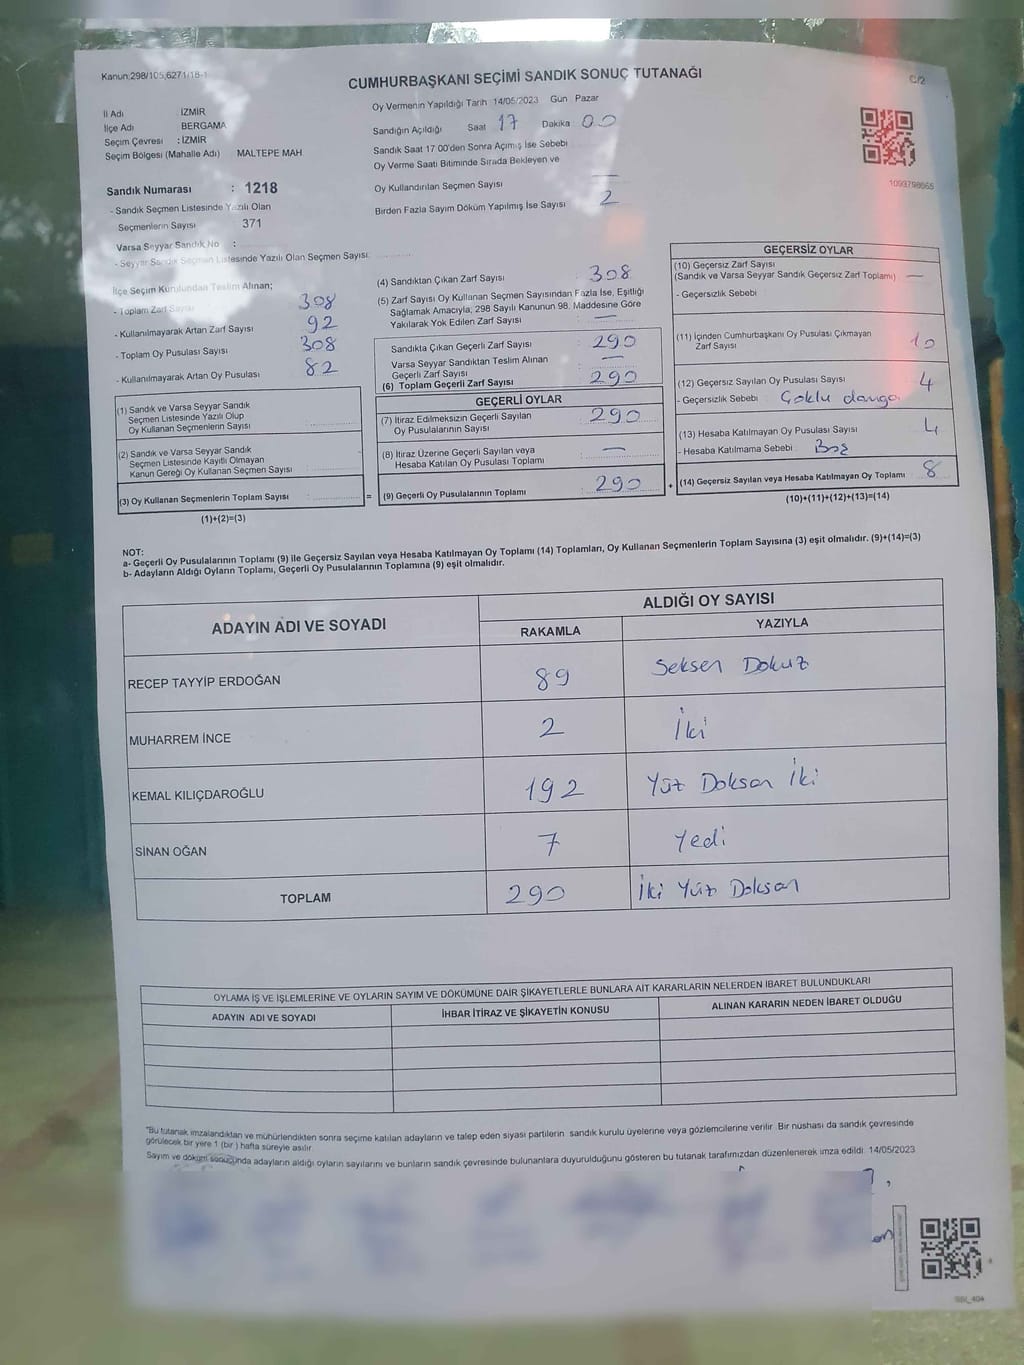 Kanun:298/105,6271/18-1
CUMHURBAŞKANI SEÇİMİ SANDIK SONUÇ TUTANAĞI
C/2
İl Adı : İZMİR
İlçe Adı : BERGAMA
Seçim Çevresi : İZMİR
Seçim Bölgesi (Mahalle Adı) MALTEPE MAH
Sandık Numarası : 1218
- Sandık Seçmen Listesinde Yazılı Olan
Seçmenlerin Sayısı 371
Varsa Seyyar Sandık No :
- Seyyar Sandık Seçmen Listesinde Yazılı Olan Seçmen Sayısı:
Oy Vermenin Yapıldığı Tarih 14/05/2023 Gün Pazar
Sandığın Açıldığı Saat 17 Dakika 00
Sandık Saat 17 00'den Sonra Açımış İse Sebebi
Oy Verme Saati Bitiminde Sırada Bekleyen ve
Oy Kullandırılan Seçmen Sayısı —
Birden Fazla Sayım Döküm Yapılmış İse Sayısı 2
1093798665
İlçe Seçim Kurulundan Teslim Alınan;
- Toplam Zarf Sayısı 308
- Kullanılmayarak Artan Zarf Sayısı 92
- Toplam Oy Pusulası Sayısı 308
- Kullanılmayarak Artan Oy Pusulası 82
(1) Sandık ve Varsa Seyyar Sandık
Seçmen Listesinde Yazılı Olup
Oy Kullanan Seçmenlerin Sayısı
(2) Sandık ve Varsa Seyyar Sandık
Seçmen Listesinde Kayıtlı Olmayan
Kanun Gereği Oy Kullanan Seçmen Sayısı
(3) Oy Kullanan Seçmenlerin Toplam Sayısı :
(1)+(2)=(3)
=
(4) Sandıktan Çıkan Zarf Sayısı : 308
(5) Zarf Sayısı Oy Kullanan Seçmen Sayısından Fazla İse, Eşitliği
Sağlamak Amacıyla, 298 Sayılı Kanunun 98. Maddesine Göre
Yakılarak Yok Edilen Zarf Sayısı : —
Sandıkta Çıkan Geçerli Zarf Sayısı : 290
Varsa Seyyar Sandıktan Teslim Alınan
Geçerli Zarf Sayısı : —
(6) Toplam Geçerli Zarf Sayısı : 290
GEÇERLİ OYLAR
(7) İtiraz Edilmeksizin Geçerli Sayılan
Oy Pusulalarının Sayısı : 290
(8) İtiraz Üzerine Geçerli Sayılan veya
Hesaba Katılan Oy Pusulası Toplamı : —
(9) Geçerli Oy Pusulalarının Toplamı : 290
+
GEÇERSİZ OYLAR
(10) Geçersiz Zarf Sayısı
(Sandık ve Varsa Seyyar Sandık Geçersiz Zarf Toplamı) —
- Geçersizlik Sebebi
(11) İçinden Cumhurbaşkanı Oy Pusulası Çıkmayan
Zarf Sayısı 10
(12) Geçersiz Sayılan Oy Pusulası Sayısı 4
- Geçersizlik Sebebi : Çoklu damga
(13) Hesaba Katılmayan Oy Pusulası Sayısı 4
- Hesaba Katılmama Sebebi : Boş
(14) Geçersiz Sayılan veya Hesaba Katılmayan Oy Toplamı : 8
(10)+(11)+(12)+(13)=(14)
NOT:
a- Geçerli Oy Pusulalarının Toplamı (9) ile Geçersiz Sayılan veya Hesaba Katılmayan Oy Toplamı (14) Toplamları, Oy Kullanan Seçmenlerin Toplam Sayısına (3) eşit olmalıdır. (9)+(14)=(3)
b- Adayların Aldığı Oyların Toplamı, Geçerli Oy Pusulalarının Toplamına (9) eşit olmalıdır.
ADAYIN ADI VE SOYADI
ALDIĞI OY SAYISI
RAKAMLA YAZIYLA
RECEP TAYYİP ERDOĞAN 89 Seksen Dokuz
MUHARREM İNCE 2 İki
KEMAL KILIÇDAROĞLU 192 Yüz Doksan İki
SİNAN OĞAN 7 Yedi
TOPLAM 290 İki Yüz Doksan
OYLAMA İŞ VE İŞLEMLERİNE VE OYLARIN SAYIM VE DÖKÜMÜNE DAİR ŞİKAYETLERLE BUNLARA AİT KARARLARIN NELERDEN İBARET BULUNDUKLARI
ADAYIN ADI VE SOYADI İHBAR İTİRAZ VE ŞİKAYETİN KONUSU ALINAN KARARIN NEDEN İBARET OLDUĞU
"Bu tutanak imzalandıktan ve mühürlendikten sonra seçime katılan adayların ve talep eden siyasi partilerin sandık kurulu üyelerine veya gözlemcilerine verilir. Bir nüshası da sandık çevresinde
görülecek bir yere 1 (bir ) hafta süreyle asılır.
Sayım ve döküm sonucunda adayların aldığı oyların sayılarını ve bunların sandık çevresinde bulunanlara duyurulduğunu gösteren bu tutanak tarafımızdan düzenlenerek imza edildi. 14/05/2023